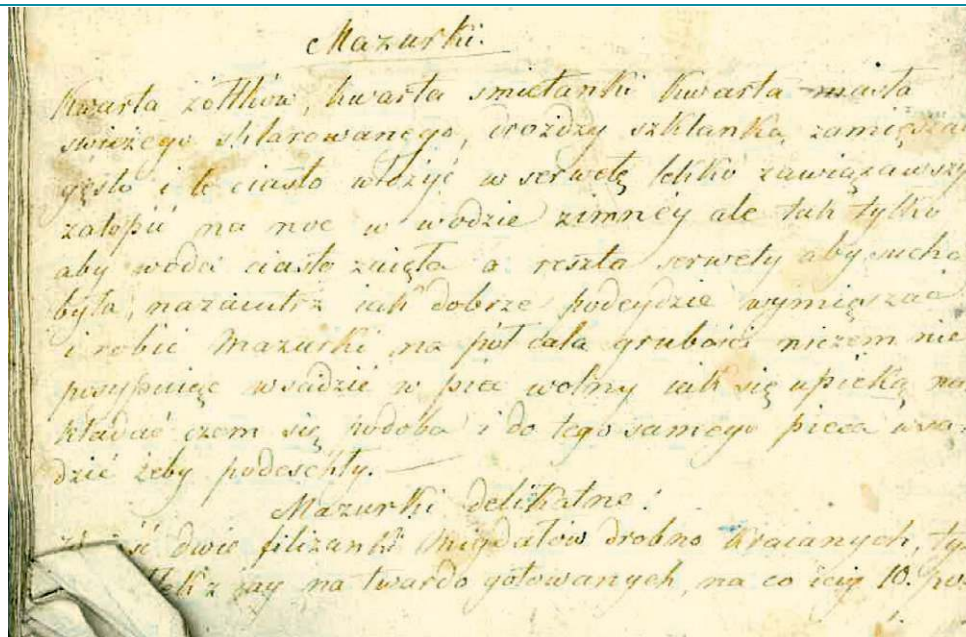 Mazurki.
Kwarta żółtków, kwarta smietanki kwarta masła
świeżego sklarowanego, drożdzy szklanką zamięszać
gęsto i te ciasto włożyć w serwetę lekko zawiązawszy
zatopić na noc w wodzie zimney ale tak tylko
aby woda ciasto zaięła a reszta serwety aby sucha
była, nazaiutrz iak dobrze podeydzie wymięszac
i robić Mazurki na pół cala grubości niczem nie
posypuiąc wsadzić w piec wolny iak się upieką na
kładać czem się podoba i do tego samego pieca wsa-
dzić żeby podeschły.
Mazurki delikatne:
dwie filiżanki Migdałów drobno kraianych, ty
z jay na twardo gotowanych, na co iciy 10.